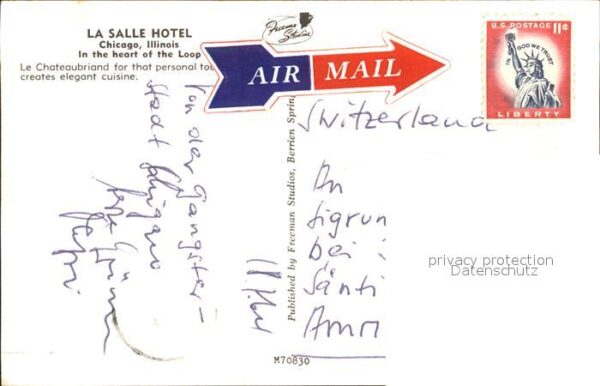 LA SALLE HOTEL
Chicago, Illinois
In the heart of the Loop
Le Chateaubriand for that personal to
creates elegant cuisine.
Freeman
Studios
AIR MAIL
U.S. POSTAGE 11¢
IN GOD WE TRUST
LIBERTY
Von der Gangster-
stadt
Published by Freeman Studios, Berrien Sprin
Switzerland
An
Sigrun
bei:
Sänti
privacy protection
Datenschutz
M70830